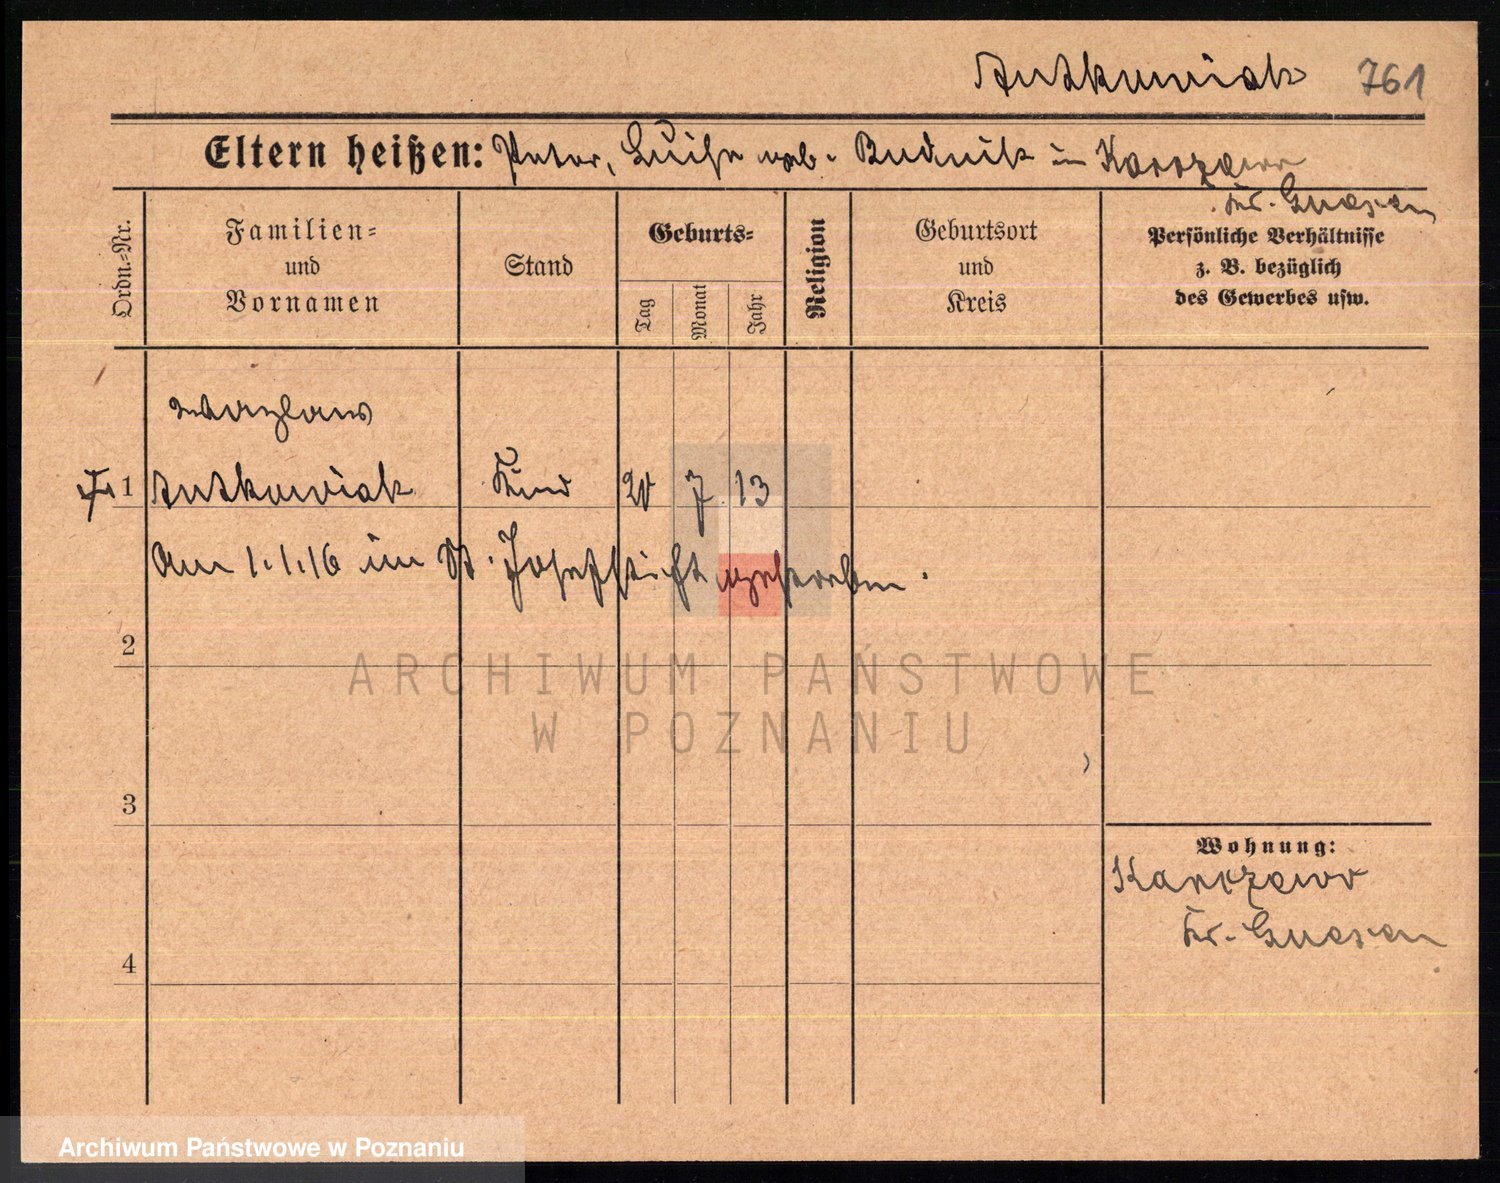 Antkowiak 761
Eltern heißen: Peter, Luise geb. Budnik in Karczewo
Kr. Gnesen
Ordn.-Nr.
Familien-
und
Vornamen
Stand
Geburts-
Tag
Monat
Jahr
Religion
Geburtsort
und
Kreis
Persönliche Verhältnisse
z. B. bezüglich
des Gewerbes usw.
Wazlaw
1 Antkowiak Kind 20 7 13
Am 1.1.16 im St. Josephstift gestorben.
2
ARCHIWUM PAŃSTWOWE
W POZNANIU
3
Wohnung:
Karczewo
Kr. Gnesen
4
Archiwum Państwowe w Poznaniu